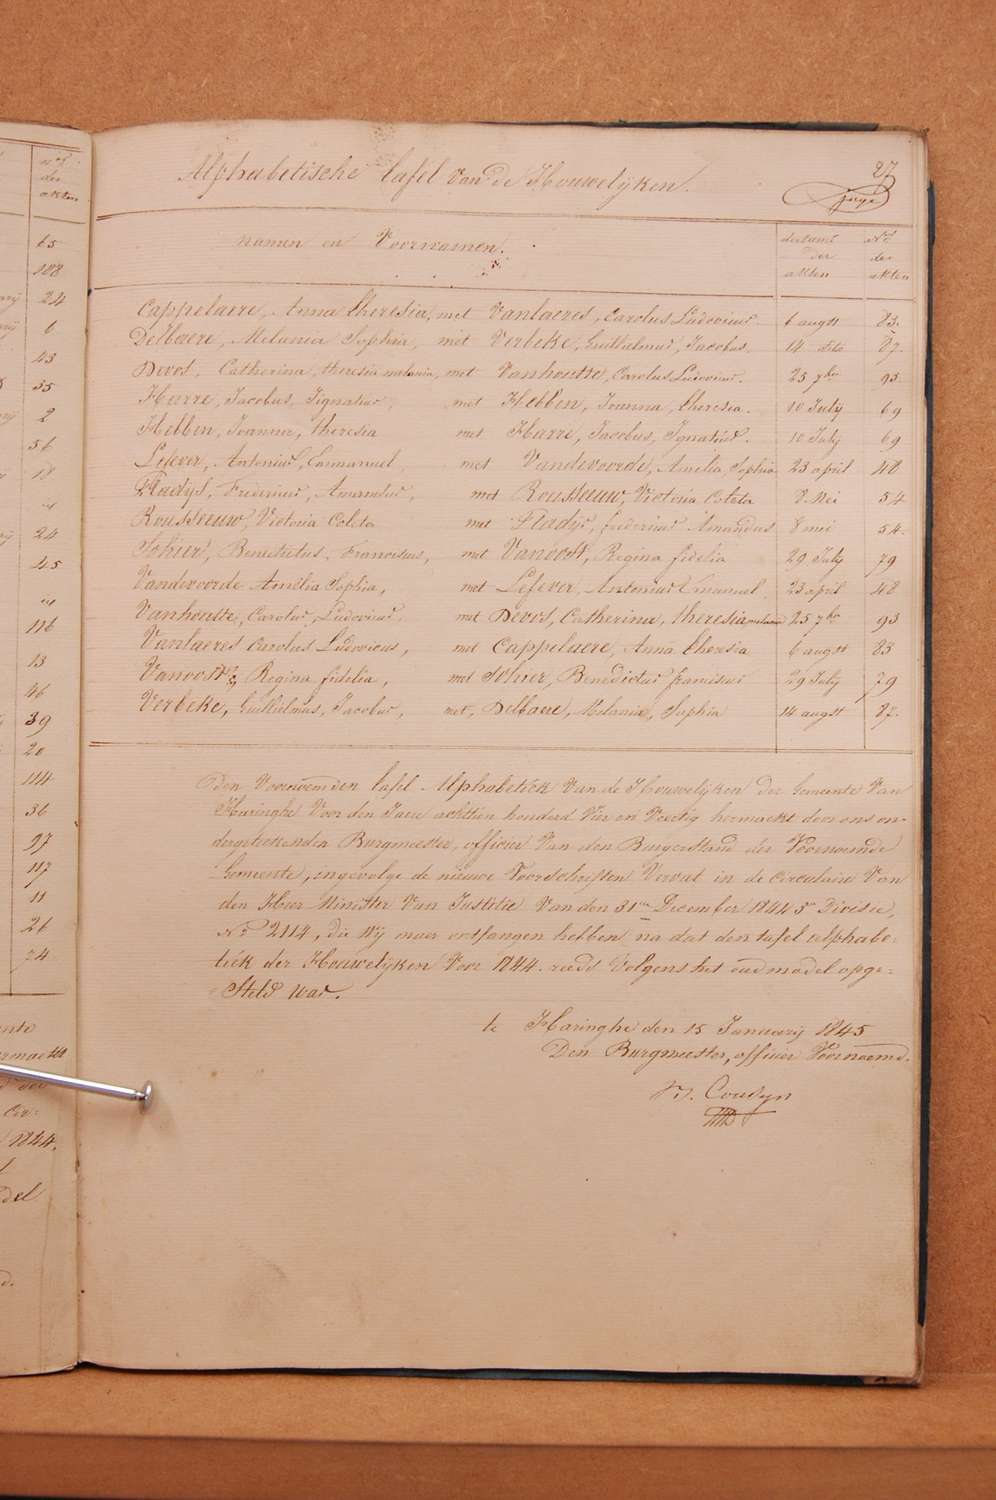 Alphabetische tafel van de Houwelijken.
27
page
namen en Voornamen.
datums der akten
No. der akten
Cappelaere, Anna theresia, met Vanlaeres, Carolus Ludovicus. 6 augst 83.
Delbaere, Melania Sophia, met Verbeke, Guilielmus, Jacobus. 14 dito 87.
Devos, Catherina, theresia melania, met Vanhoutte, Carolus Ludovicus. 25 7ber 93
Harre, Jacobus, Ignatius, met Hebben, Joanna, theresia. 10 July 69
Hebben, Joanna, theresia met Harre, Jacobus, Ignatius. 10 July 69
Lefever, Antonius, Emmanuel, met Vandevoorde, Amelia, Sophia 23 april 48
Pladys, Frederius, Amandus, met Rousseeuw, Victoria Coleta 8 Mei 54
Rousseeuw, Victoria Coleta met Pladys, frederius Amandus 8 mei 54.
Sohier, Benedictus, Franciscus, met Vanoost, Regina fidelia 29 July 79
Vandevoorde Amelia Sophia, met Lefever, Antonius Emanuel, 23 april 48
Vanhoutte, Carolus, Ludovicus, met Devos, Catherina, theresia melania 25 7ber 93
Vanlaeres Carolus Ludovicus, met Cappelaere, Anna theresia 6 augst 83
Vanoost, Regina fidelia, met Sohier, Benedictus franciscus 29 July 79
Verbeke, Guilielmus, Jacobus, met, Delbaere, Melania, Sophia 14 augst 87.
Den Voornoemden tafel Alphabetiek Van de Houwelijken der Gemeente Van
Haringhe Voor den Jaere achttien honderd Vier en Veertig hermaekt door ons on-
derteekenden Burgmeester, officier Van den Burgerstand der Voornoemde
Gemeente, ingevolge de nieuwe Voorschriften Vervat in de circulaire Van
den Heer Minister Van Justitie Van den 31en December 1844 5e Divisie,
No 2114, die Wij maer ontfangen hebben na dat den tafel alphabe-
tiek der Houwelijken Voor 1844. reeds Volgens het oud model opge-
steld was.
te Haringhe den 15 January 1845
Den Burgmeester, officier Voornoemd.
Coudyn
No.
der
akten
65
108
24
6
43
35
2
56
18
24
45
116
13
46
39
20
114
36
97
117
11
26
74
1844.